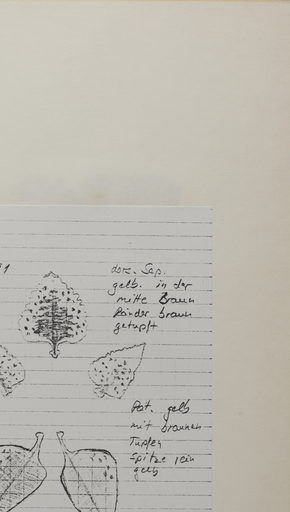 dors. Sep.
gelb. in der
mitte Braun
Ränder braun
getupft
Pet. gelb
mit braunen
Tupfen
Spitze rein
gelb